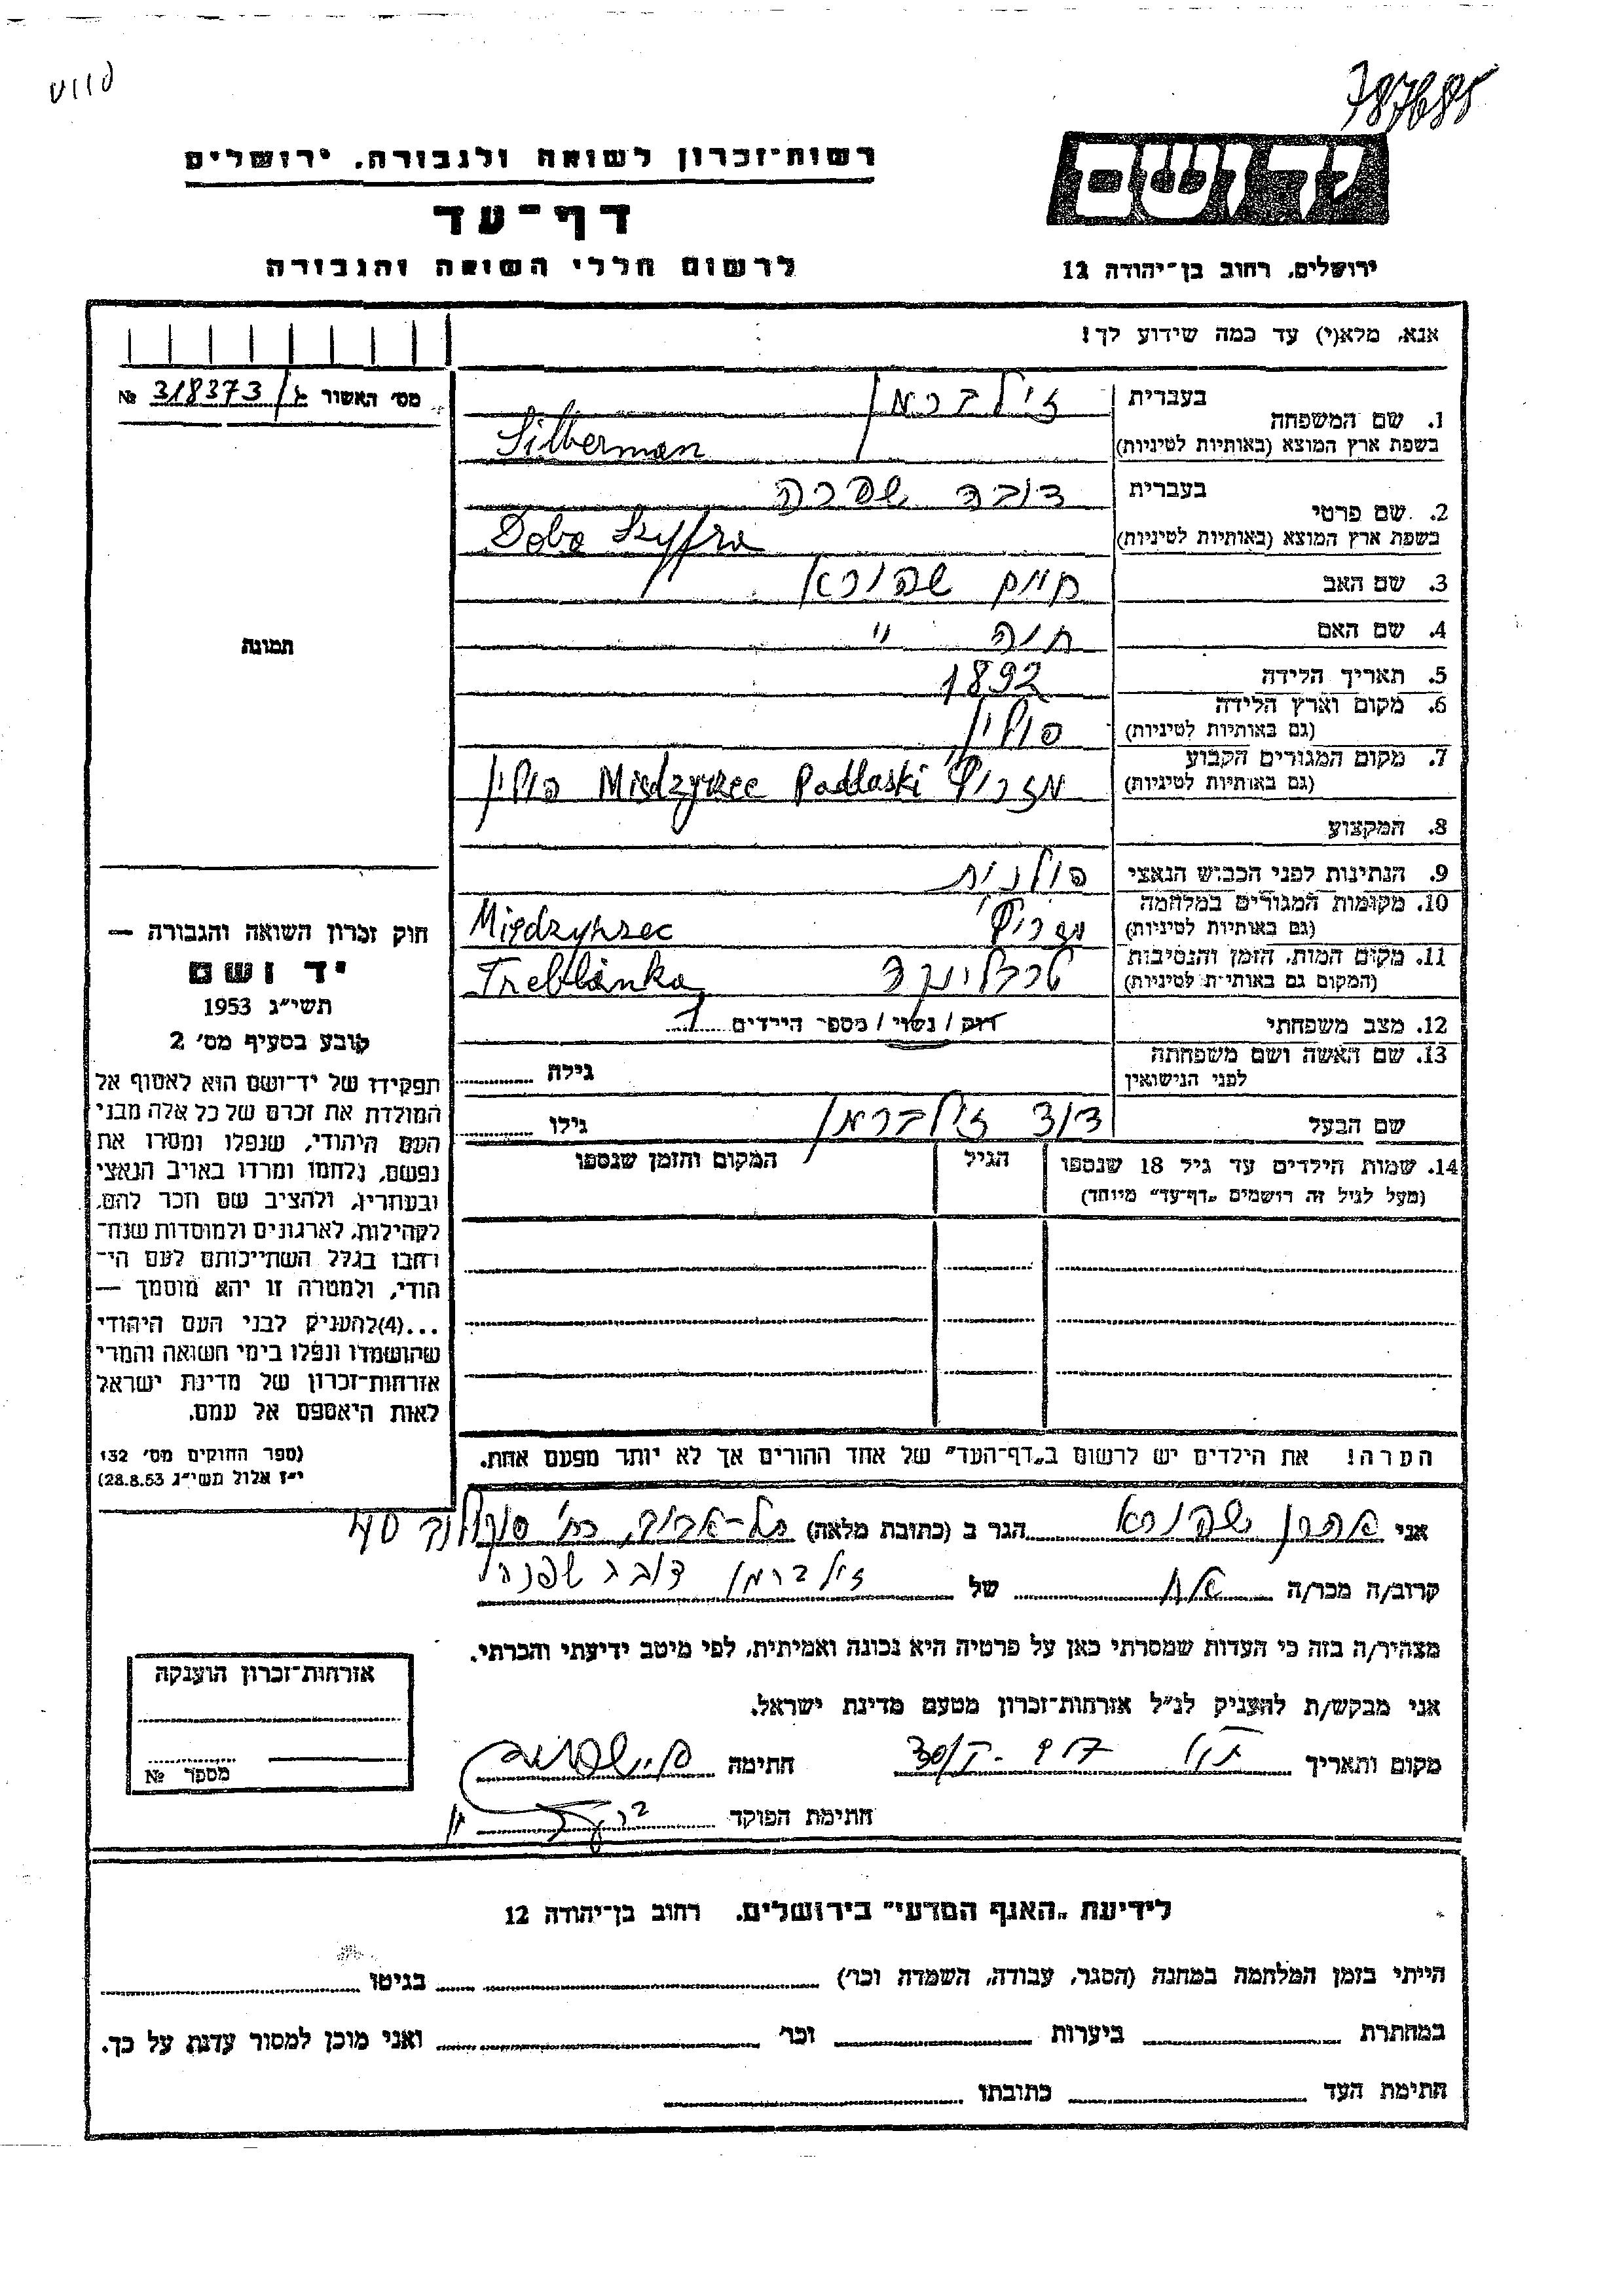 787685
רשות־זכרון לשואה ולגבורה, ירושלים
דף־עד
לרשום חללי השואה והגבורה
יד ושם
ירושלים, רחוב בן־יהודה 12
אנא, מלא(י) עד כמה שידוע לך!
מס׳ האשור ג/ 318373 №
1. שם המשפחה
בעברית זילברמאן
בשפת ארץ המוצא (באותיות לטיניות) Silberman
2. שם פרטי
בעברית דובה שפרה
בשפת ארץ המוצא (באותיות לטיניות) Doba Szyfra
3. שם האב חיים שפירא
4. שם האם חיה "
5. תאריך הלידה 1892
6. מקום וארץ הלידה
(גם באותיות לטיניות) פולין
7. מקום המגורים הקבוע
(גם באותיות לטיניות) מזריץ' Miedzyrzec Padlaski פולין
8. המקצוע
9. הנתינות לפני הכבוש הנאצי פולנית
10. מקומות המגורים במלחמה
(גם באותיות לטיניות) מזריץ' Międzyrzec
11. מקום המות, הזמן והנסיבות
(המקום גם באותיות לטיניות) טרבלינקה Treblinka
12. מצב משפחתי רוק / נשוי / מספר הילדים 1
13. שם האשה ושם משפחתה
לפני הנישואין גילה
שם הבעל דוד זילברמאן גילו
14. שמות הילדים עד גיל 18 שנספו הגיל המקום והזמן שנספו
(מעל לגיל זה רושמים „דף־עד״ מיוחד)
הערה! את הילדים יש לרשום ב„דף־העד״ של אחד ההורים אך לא יותר מפעם אחת.
תמונה
חוק זכרון השואה והגבורה —
יד ושם
תשי״ג 1953
קובע בסעיף מס׳ 2
תפקידו של יד־ושם הוא לאסוף אל
המולדת את זכרם של כל אלה מבני
העם היהודי, שנפלו ומסרו את
נפשם, נלחמו ומרדו באויב הנאצי
ובעוזריו, ולהציב שם וזכר להם,
לקהילות, לארגונים ולמוסדות שנח־
רחבו בגלל השתייכותם לעם הי־
הודי, ולמטרה זו יהא מוסמך —
...(4)להעניק לבני העם היהודי
שהושמדו ונפלו בימי השואה והמרי
אזרחות־זכרון של מדינת ישראל
לאות היאספם אל עמם.
(ספר החוקים מס׳ 132
י״ז אלול תשי״ג 28.8.53)
אני אהרן שפירא הגר ב (כתובת מלאה) תל-אביב, רח'
קרוב/ה מכר/ה אח של זילברמן דובה שפרה
מצהיר/ה בזה כי העדות שמסרתי כאן על פרטיה היא נכונה ואמיתית, לפי מיטב ידיעתי והכרתי.
אני מבקש/ת להעניק לנ״ל אזרחות־זכרון מטעם מדינת ישראל.
מקום ותאריך חתימה
חתימת הפוקד
אזרחות־זכרון הוענקה
מספר №
לידיעת „האגף המדעי״ בירושלים, רחוב בן־יהודה 12
הייתי בזמן המלחמה במחנה (הסגר, עבודה, השמדה וכו׳) בגיטו
במחתרת ביערות וכו׳ ואני מוכן למסור עדות על כך.
חתימת העד כתובתו